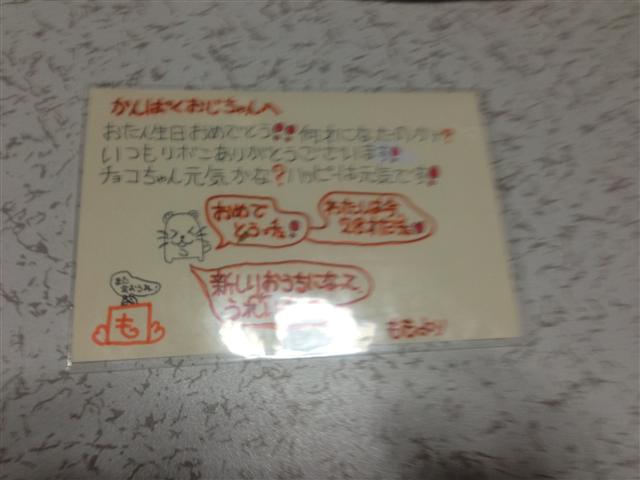 かんぱちおじちゃんへ
おたん生日おめでとう!! 何才になったのかな?
いつもリボンありがとうございます!
チョコちゃん元気かな?ハッピーは元気です!
おめで
とうっチュ!
わたしは今、
2才だチュ!
新しいおうちになって
うれ
また
も
もも より